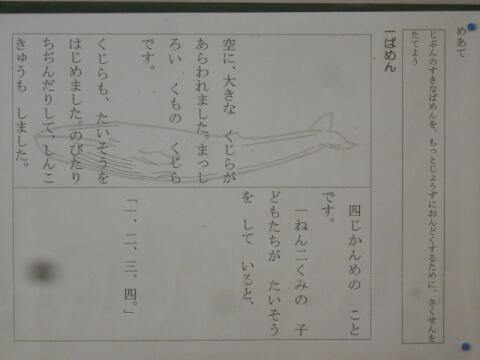 めあて
じぶんのすきなばめんを、もっとじょうずにおんどくするために、さくせんを
たてよう
一ばめん
四じかんめの ことです。
一ねん二くみの 子
どもたちが たいそう
を して いると、
「一、二、三、四。」
空に、大きな くじらが
あらわれました。まっし
ろい くもの くじら
です。
くじらも、たいそうを
はじめました。のびたり
ちぢんだりして、しんこ
きゅうも しました。